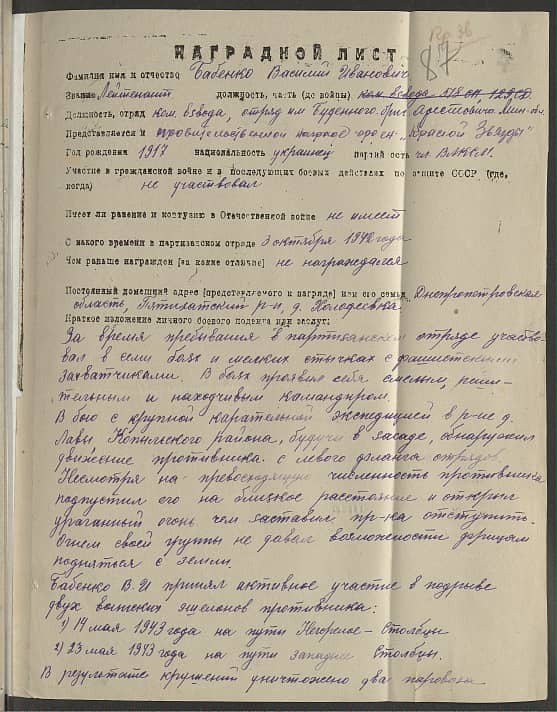 Пр 36
87
НАГРАДНОЙ ЛИСТ
Фамилия имя и отчество Бабенко Василий Иванович
Звание Лейтенант должность, часть (до войны) ком. взвода
Должность, отряд ком. взвода, отряд им Буденного бриг.
Представляется к правительственной награде орден „Красной Звезды"
Год рождения 1917 национальность украинец партийность чл. ВЛКСМ.
Участие в гражданской войне и в последующих боевых действиях по защите СССР (где,
когда) не участвовал
Имеет ли ранение и контузию в Отечественной войне не имеет
С какого времени в партизанском отряде 3 октября 1942 года
Чем раньше награжден [за какие отличия] не награждался
Постоянный домашний адрес [представляемого к награде] или его семьи Днепропетровская
область, Пятихатский р-н, д.
Краткое изложение личного боевого подвига или заслуг:
За время пребывания в партизанском отряде участво-
вал в семи боях и мелких стычках с фашистскими
захватчиками. В боях проявил себя смелым, реши-
тельным и находчивым командиром.
В бою с крупной карательной экспедицией в р-не д.
Лавы Копыльского района, будучи в засаде, обнаружил
движение противника с левого фланга отрядов.
Несмотря на превосходящую численность противника
подпустил его на близкое расстояние и открыл
ураганный огонь чем заставил пр-ка отступить.
Огнем своей группы не давал возможности фрицам
подняться с земли.
Бабенко В.И принял активное участие в подрыве
двух воинских эшелонов противника:
1) 14 мая 1943 года на пути Негорелое – Столбцы
2) 23 мая 1943 года на пути западнее Столбцы.
В результате крушений уничтожено два паровоза